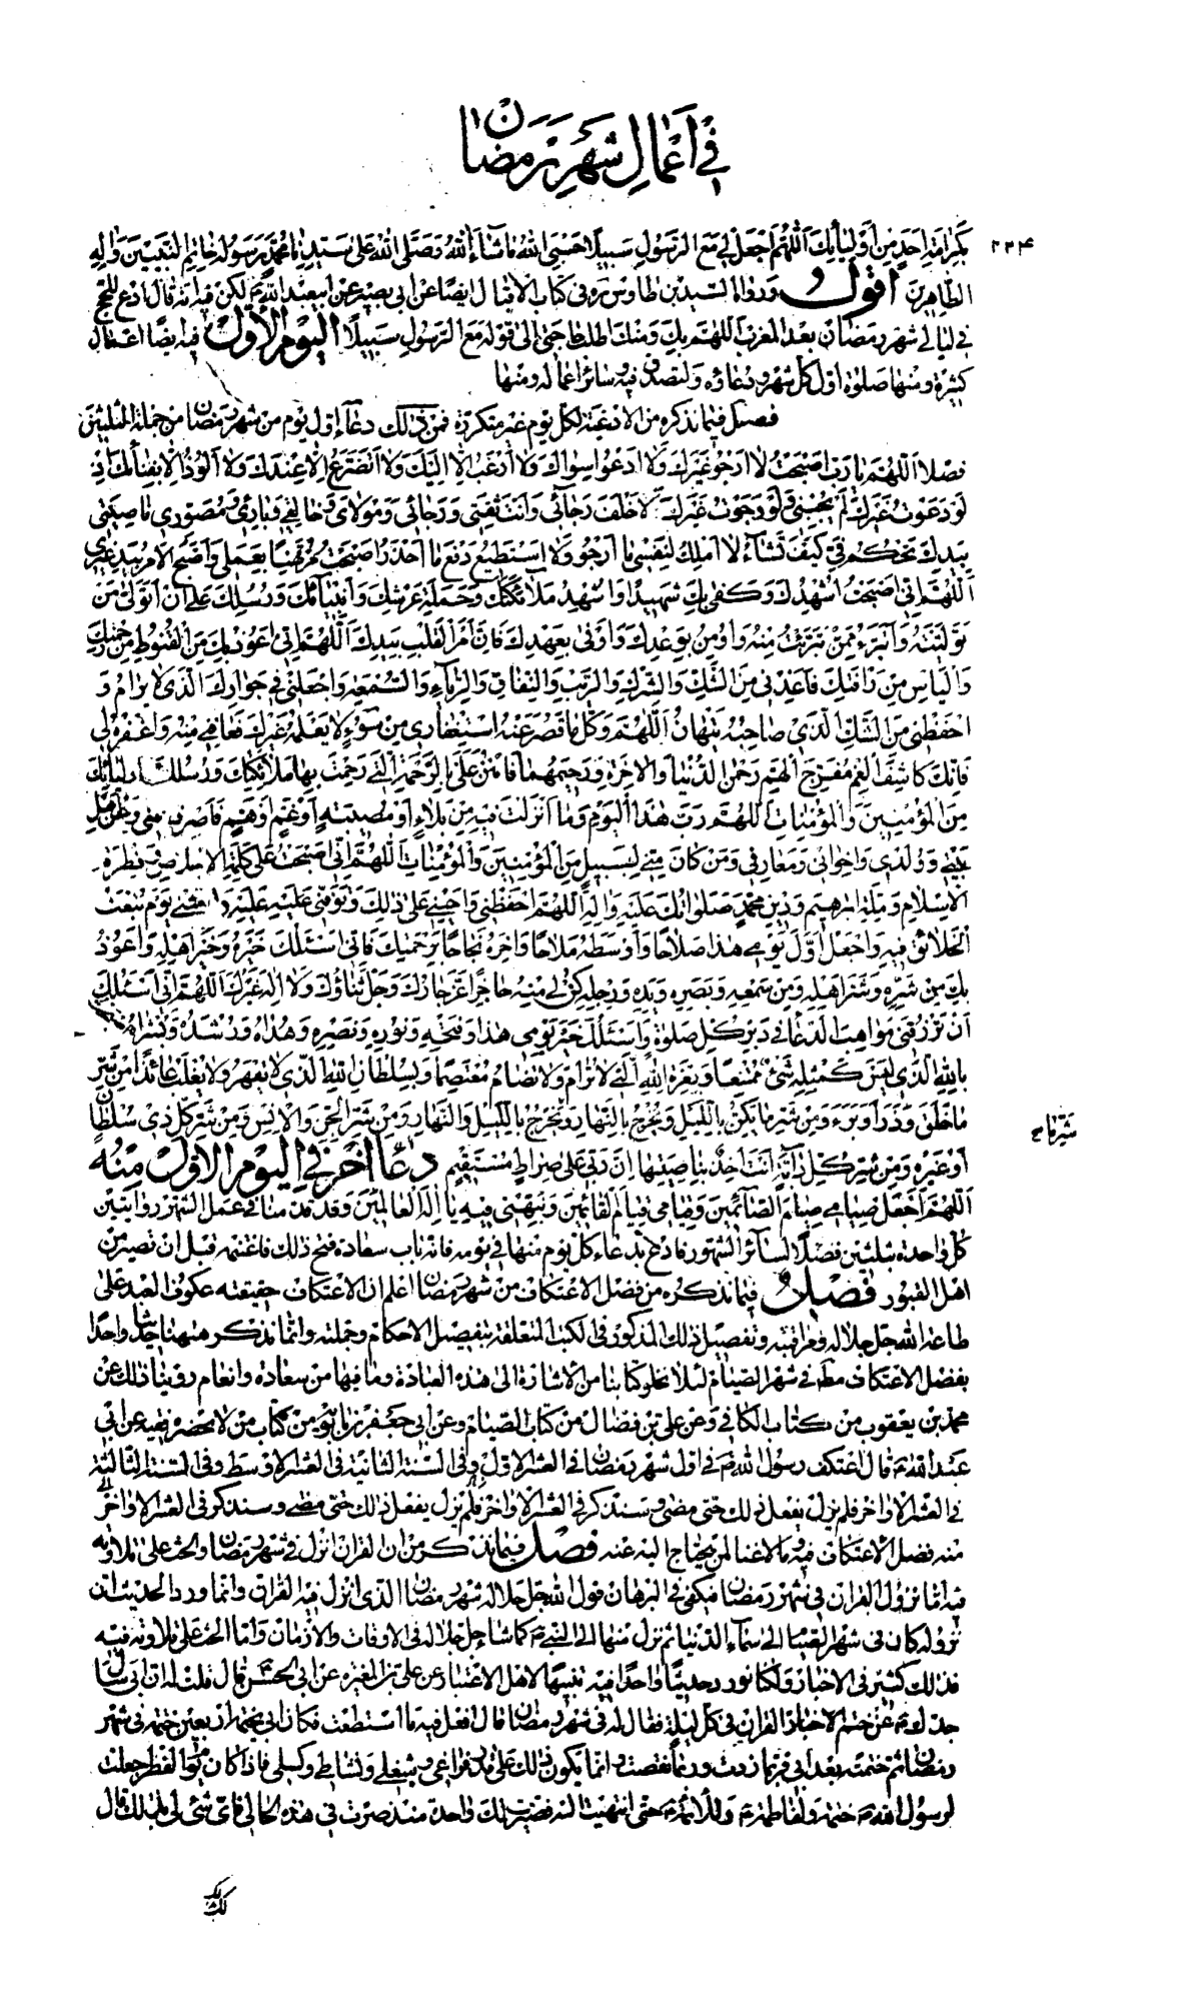 في أعمال شهر رمضان
٢٣٤
بكرامة احد من اوليائك اللهم اجعل لي مع الرسول سبيلا حسبي الله ما شاء الله وصلى الله على سيدنا محمد رسوله خاتم النبيين وآله
الطاهرين أقول ورواه السيد بن طاوس ره في كتاب الاقبال ايضا عن ابي بصير عن ابيعبد الله ع لكن فيه انه قال ادع للحج
في ليالي شهر رمضان بعد المغرب اللهم بك ومنك اطلب حاجتي الى قوله مع الرسول سبيلا اليوم الأول فيه ايضا اعمال
كثيرة ومنها صلوة اول كل شهر ودعاؤه والتصدق فيه وسائر اعماله ومنها
فصل فيما نذكره من الادعية لكل يوم غير متكررة فمن ذلك دعاء اول يوم من شهر رمضان من جملة الثلثين
فصلا اللهم يا رب اصبحت لا ارجو غيرك ولا ادعو سواك ولا ارغب الا اليك ولا اتضرع الا عندك ولا الوذ الا بفنائك اذ
لو دعوت غيرك لم يجبني ولو رجوت غيرك لاخلف رجائي وانت ثقتي ورجائي ومولاي وخالقي وبارئي ومصوري ناصيتي
بيدك تحكم في كيف تشاء لا املك لنفسي ما ارجو ولا استطيع دفع ما احذر اصبحت مرتهنا بعملي واصبح الامر بيد غيري
اللهم اني اصبحت اشهدك وكفى بك شهيدا واشهد ملائكتك وحملة عرشك وانبيائك ورسلك على ان اتولى من
توليته وأتبرء ممن تبرئت منه واومن بوعدك واوفي بعهدك فان امر القلب بيدك اللهم اني اعوذ بك من القنوط من رحمتك
واليأس من رأفتك فأعذني من الشك والشرك والريب والنفاق والرياء والسمعة واجعلني في جوارك الذي لا يرام و
احفظني من الشك الذي صاحبه يتهان اللهم وكل ما قصر عنه استغفاري من سوء لا يعلمه غيرك فعافني منه واغفره لي
فانك كاشف الغم مفرج الهم رحمن الدنيا والاخرة ورحيمهما فامنن علي بالرحمة التي رحمت بها ملائكتك ورسلك واوليائك
من المؤمنين والمؤمنات اللهم رب هذا اليوم وما انزلت فيه من بلاء او مصيبة او غم او هم فاصرفه عني وعن اهل
بيتي وولدي واخواني ومعارفي ومن كان مني لسبيل من المؤمنين والمؤمنات اللهم اني اصبحت على كلمة الاخلاص وفطرة
الاسلام وملة ابرهيم ودين محمد صلواتك عليه وآله اللهم احفظني واحيني على ذلك وتوفني عليه وابعثني يوم تبعث
الخلائق فيه واجعل اول يومي هذا صلاحا واوسطه فلاحا وآخره نجاحا برحمتك فاني اسئلك خيره وخير اهله واعوذ
بك من شره وشر اهله ومن سمعه وبصره ويده ورجله كن لي منه حاجزا عز جارك وجل ثناؤك ولا اله غيرك اللهم اني اسئلك
ان ترزقني مواهب الدعاء في دبر كل صلوة واسئلك خير يومي هذا وفتحه ونوره ونصره وهداه ورشده وبشراه
بالله الذي ليس كمثله شيء ممتنعا وبعزة الله التي لا ترام ولا تضام معتصما وبسلطان الله الذي لا يقهر ولا يغلب عائذا من شر
ما خلق وذرأ وبرء ومن شر ما يكن بالليل ويخرج بالنهار ويخرج بالليل والنهار ومن شر الجن والانس ومن شر كل ذي سلطان
شر ما خ
او غيره ومن شر كل دابة انت آخذ بناصيتها ان ربي على صراط مستقيم دعاء آخر في اليوم الأول منه
اللهم اجعل صيامي صيام الصائمين وقيامي قيام القائمين ونبهني فيه يا اله العالمين وقد قدمنا في عمل الشهر روايتين
كل واحدة بثلثين فصلا لسائر الشهور فادع بدعاء كل يوم منها في يومه فانه باب سعادة فتح ذلك فاغتنم قبل ان تصير من
اهل القبور فصل فيما نذكره من فضل الاعتكاف من شهر رمضان اعلم ان الاعتكاف حقيقته عكوف العبد على
طاعة الله جل جلاله ومراقبته وتفصيل ذلك المذكور في الكتب المتعلقة بتفصيل الاحكام وجملته وانما نذكر منها حديثا واحدا
بفضل الاعتكاف مطلقا في شهر الصيام لئلا يخلو كتابنا من الاشارة الى هذه العبادة وما فيها من سعادة وانعام روينا ذلك عن
محمد بن يعقوب من كتاب الكافي وعن علي بن فضال من كتاب الصيام وعن ابي جعفر بن بابويه من كتاب من لا يحضره الفقيه عن ابي
عبد الله ع قال اعتكف رسول الله ص في اول شهر رمضان في العشر الاول وفي السنة الثانية في العشر الاوسط وفي السنة الثالثة
في العشر الاواخر فلم يزل يفعل ذلك حتى مضى وسنذكر في العشر الاواخر فلم يزل يفعل ذلك حتى مضى وسنذكر في العشر الاواخر
منه فضل الاعتكاف فيه ما لا غنا لمن يحتاج اليه عنه فصل فيما نذكره من ان القران انزل في شهر رمضان والحث على تلاوته
فيه اما نزول القران في شهر رمضان فيكفي في البرهان قول الله جل جلاله شهر رمضان الذي انزل فيه القران وانما ورد الحديث ان
نزوله كان في شهر الصيام الى سماء الدنيا ثم نزل منها الى النبي ص كما شاء جل جلاله في الاوقات والازمان واما الحث على تلاوته فيه
فذلك كثير في الاخبار ولكنا نورد حديثا واحدا فيه تنبيها لاهل الاعتبار عن علي بن المغيرة عن ابي الحسن ع قال قلت له ان ابي سأل
جدك ع عن ختم القران في كل ليلة فقال له في شهر رمضان قال افعل فيه ما استطعت فكان ابي يختمه اربعين ختمة في شهر
رمضان ثم ختمته بعد ابي فربما زدت وربما نقصت وانما يكون ذلك على قدر فراغي وشغلي ونشاطي وكسلي فاذا كان يوم الفطر جعلت
لرسول الله ص ختمة ولفاطمة ع وللائمة ع حتى انتهيت اليه فصيرت لك واحدة منذ صرت في هذه الحال فاي شيء لي بذلك قال
لك